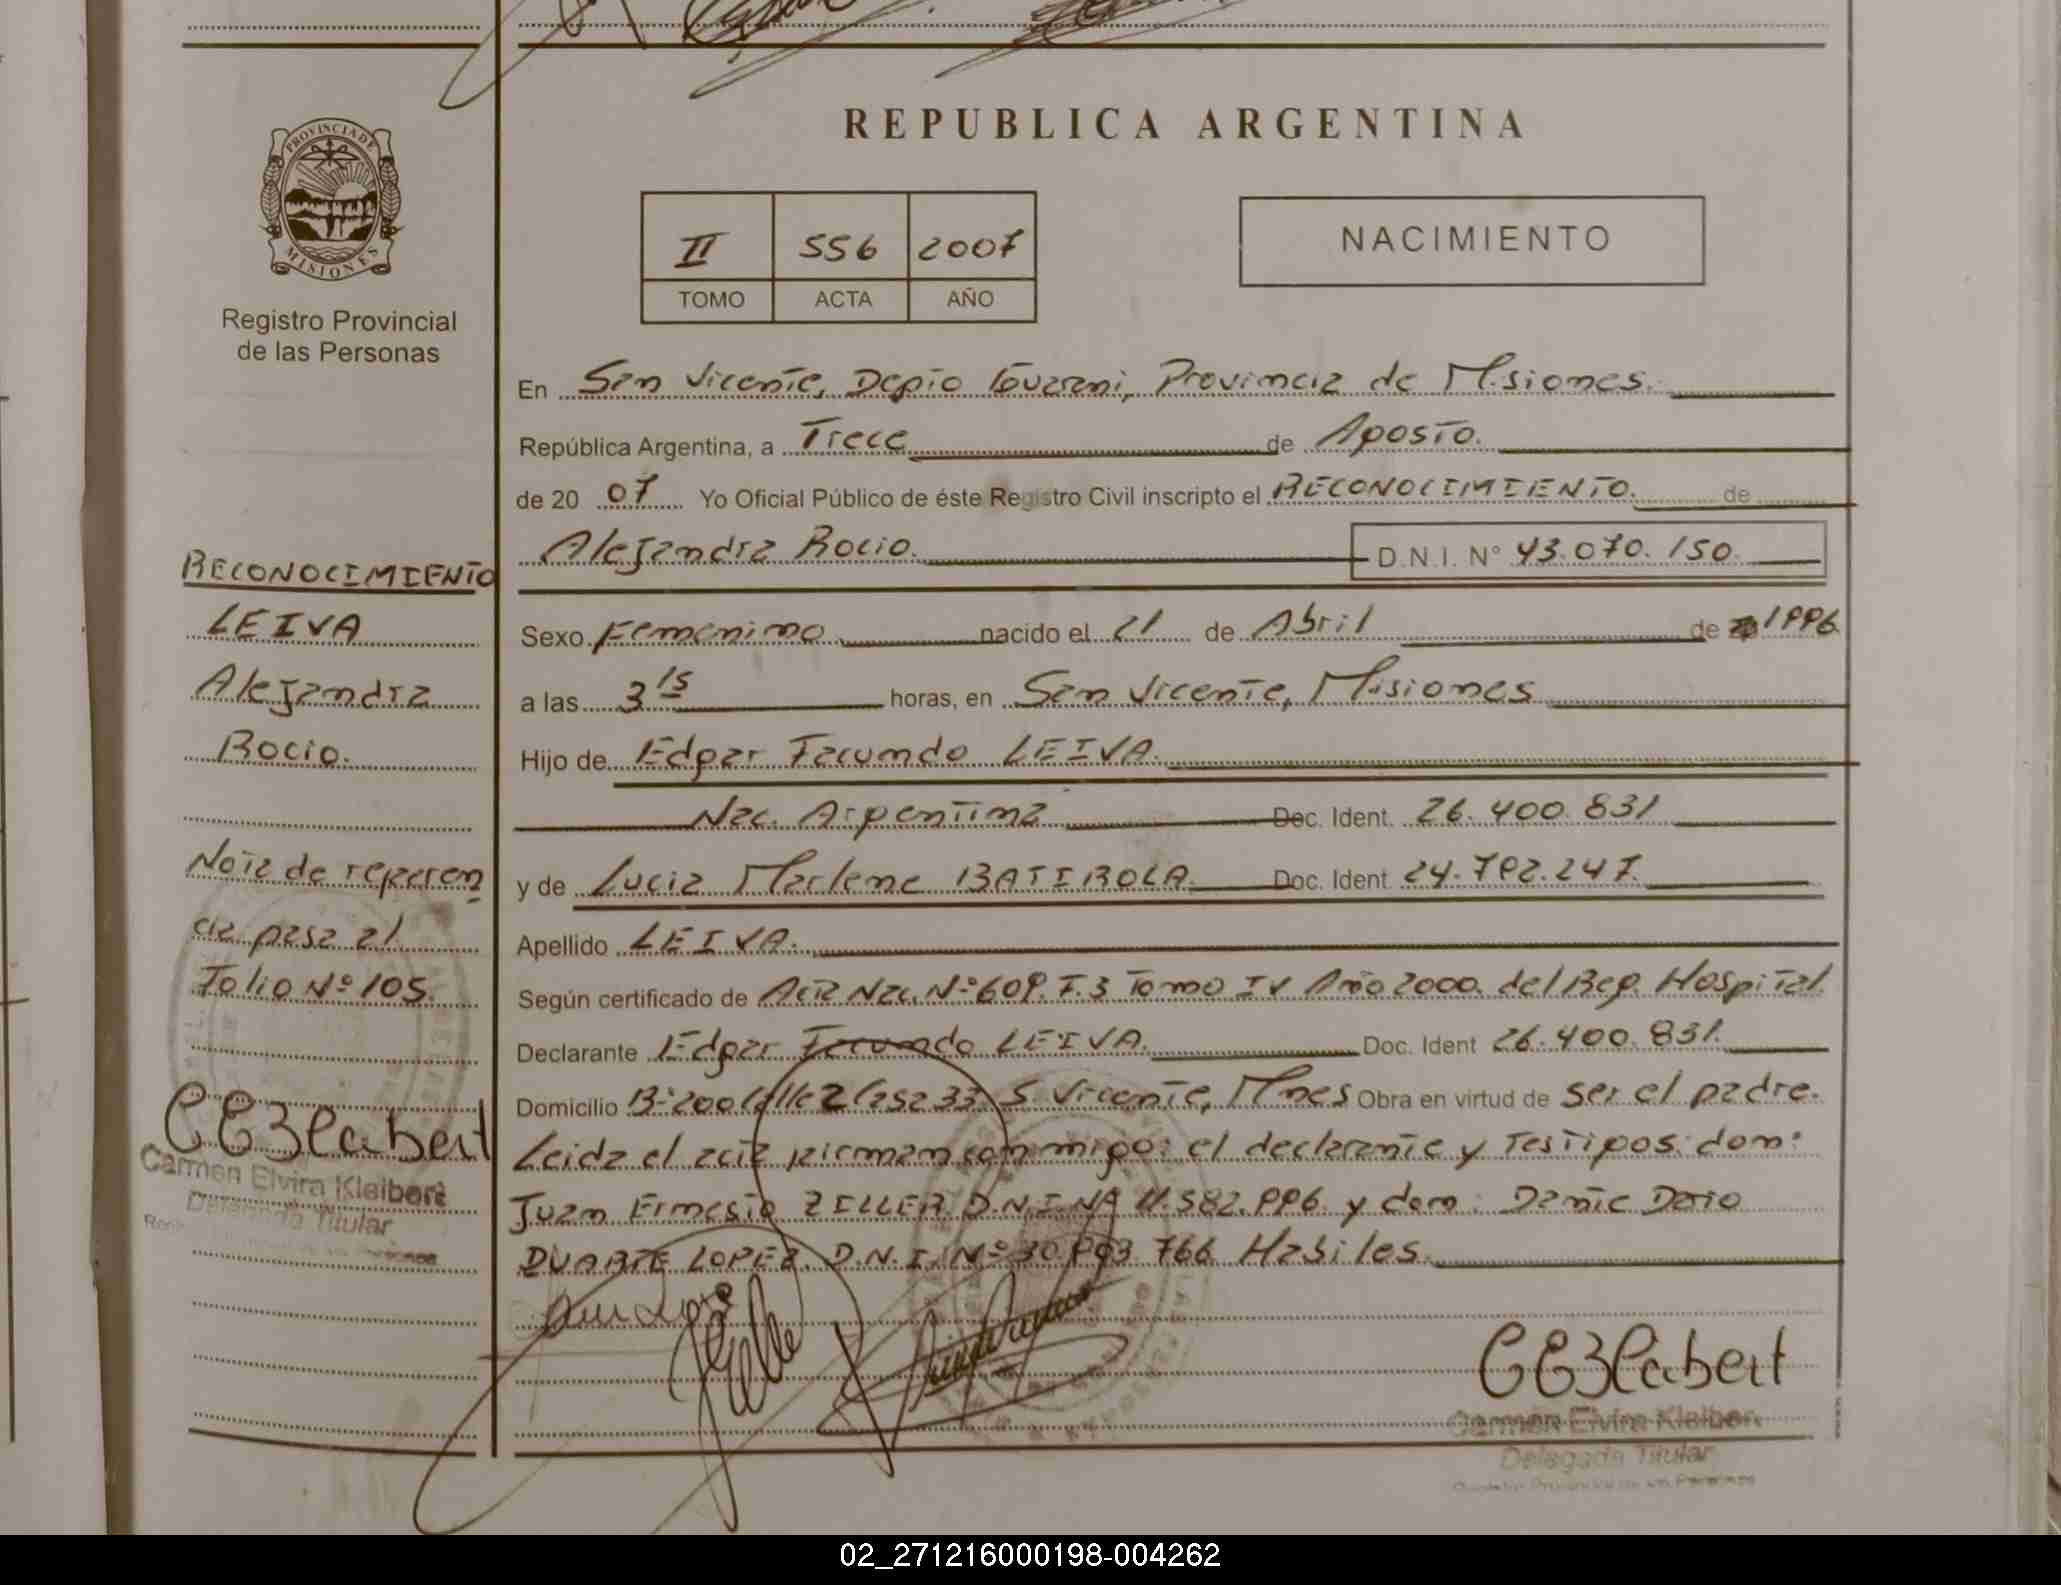 REPUBLICA ARGENTINA
PROVINCIA DE
MISIONES
Registro Provincial
de las Personas
II 556 2007
TOMO ACTA AÑO
NACIMIENTO
En San Vicente, Depto Guarani, Provincia de Misiones.
República Argentina, a Trece de Agosto.
de 20 07 Yo Oficial Público de éste Registro Civil inscripto el RECONOCIMIENTO. de
Alejandra Rocio. D.N.I. N° 43.070.150.
Sexo Femenino nacido el 21 de Abril de 1996
a las 3 15 horas, en San Vicente, Misiones
Hijo de Edgar Facundo LEIVA.
Nac. Argentina Doc. Ident. 26.400.831
y de Lucia Marlene BATIROLA. Doc. Ident 24.792.247.
Apellido LEIVA.
Según certificado de Acta Nac. Nº 609. F.3 Tomo IV Año 2000. del Reg. Hospital
Declarante Edgar Facundo LEIVA. Doc. Ident 26.400.831.
Domicilio Bº 200 Calle 2 Casa 33. S. Vicente, Mnes Obra en virtud de ser el padre.
Leida el acta firman conmigo: el declarante y Testigos: don:
Juan Ernesto ZILLER. D.N.I. Nº 11.582.996 y don: Dante Dario
DUARTE LOPEZ. D.N.I. Nº 30.893.766 Habiles.
RECONOCIMIENTO
LEIVA
Alejandra
Rocio.
Nota de referen
cia pasa al
Folio Nº 105.
Carmen Elvira Kleibert
Delegada Titular
Carmen Elvira Kleibert
Delegada Titular
02_271216000198-004262